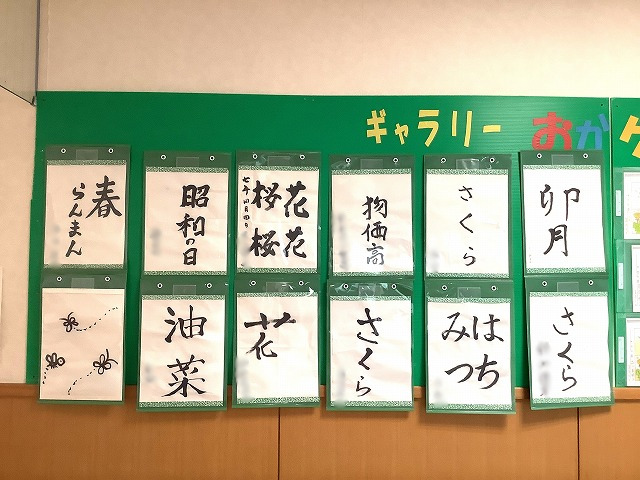 ギャラリー おか
卯月
さくら
物価高
花花
桜桜
七年 四月四日
昭和の日
春
らんまん
さくら
はち
みつ
さくら
花
油菜